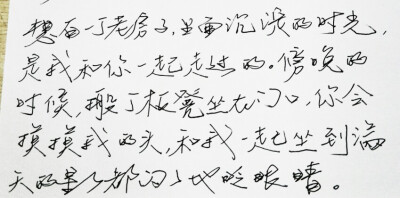 想有一丁老房子,里面沉淀的时光,
是我和你一起走过的。傍晚的
时候,搬丁板凳坐在门口,你会
摸摸我的头,和我一起坐到满
天的星星都闪闪地眨眼睛。